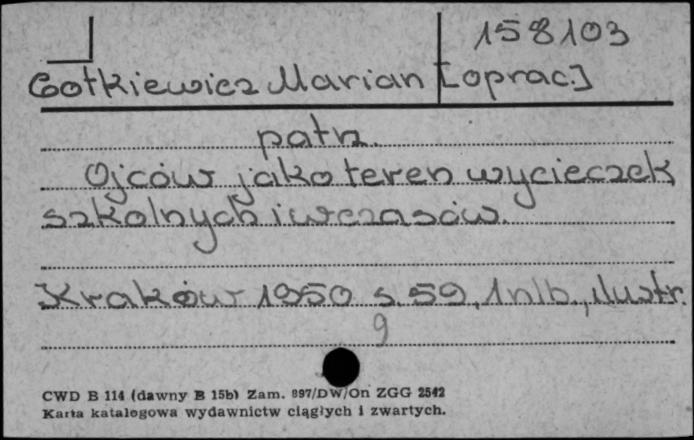 158103
Gotkiewicz Marian [oprac.]
patrz.
Ojców jako teren wycieczek
szkolnych i wczasów.
Kraków 1950 s. 59, 1 nlb., ilustr.
9
CWD B 114 (dawny B 15b) Zam. 897/DW/On ZGG 2542
Karta katalogowa wydawnictw ciągłych i zwartych.